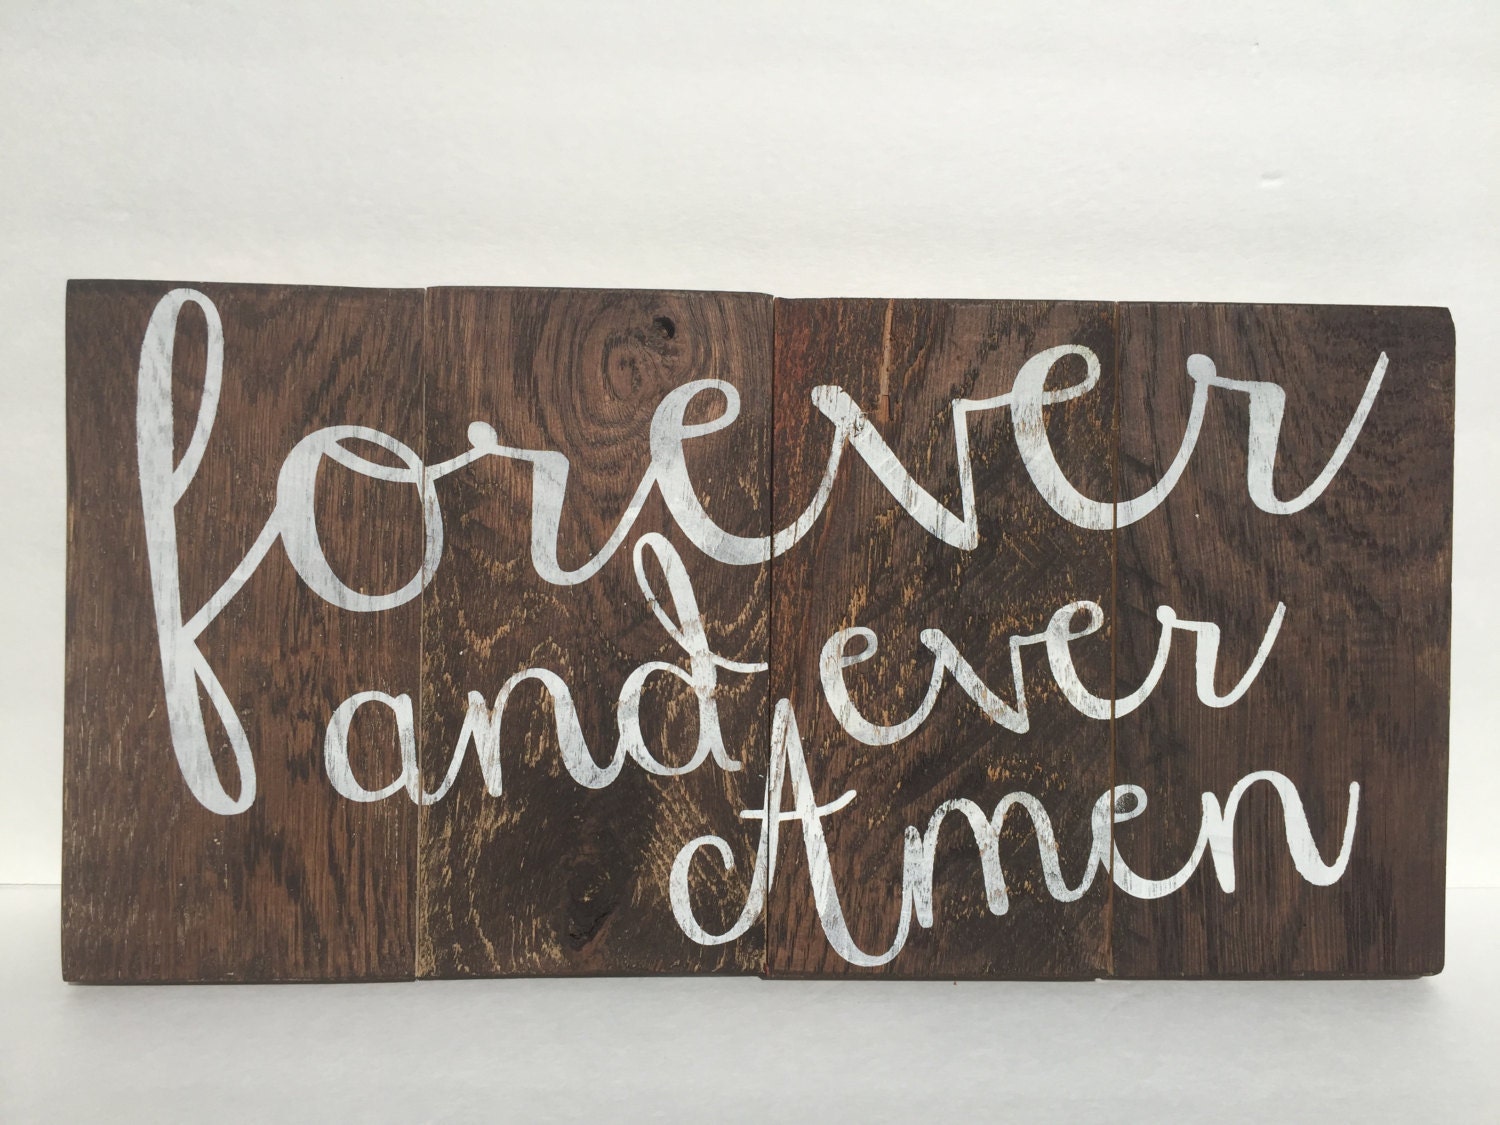 forever
and ever
Amen